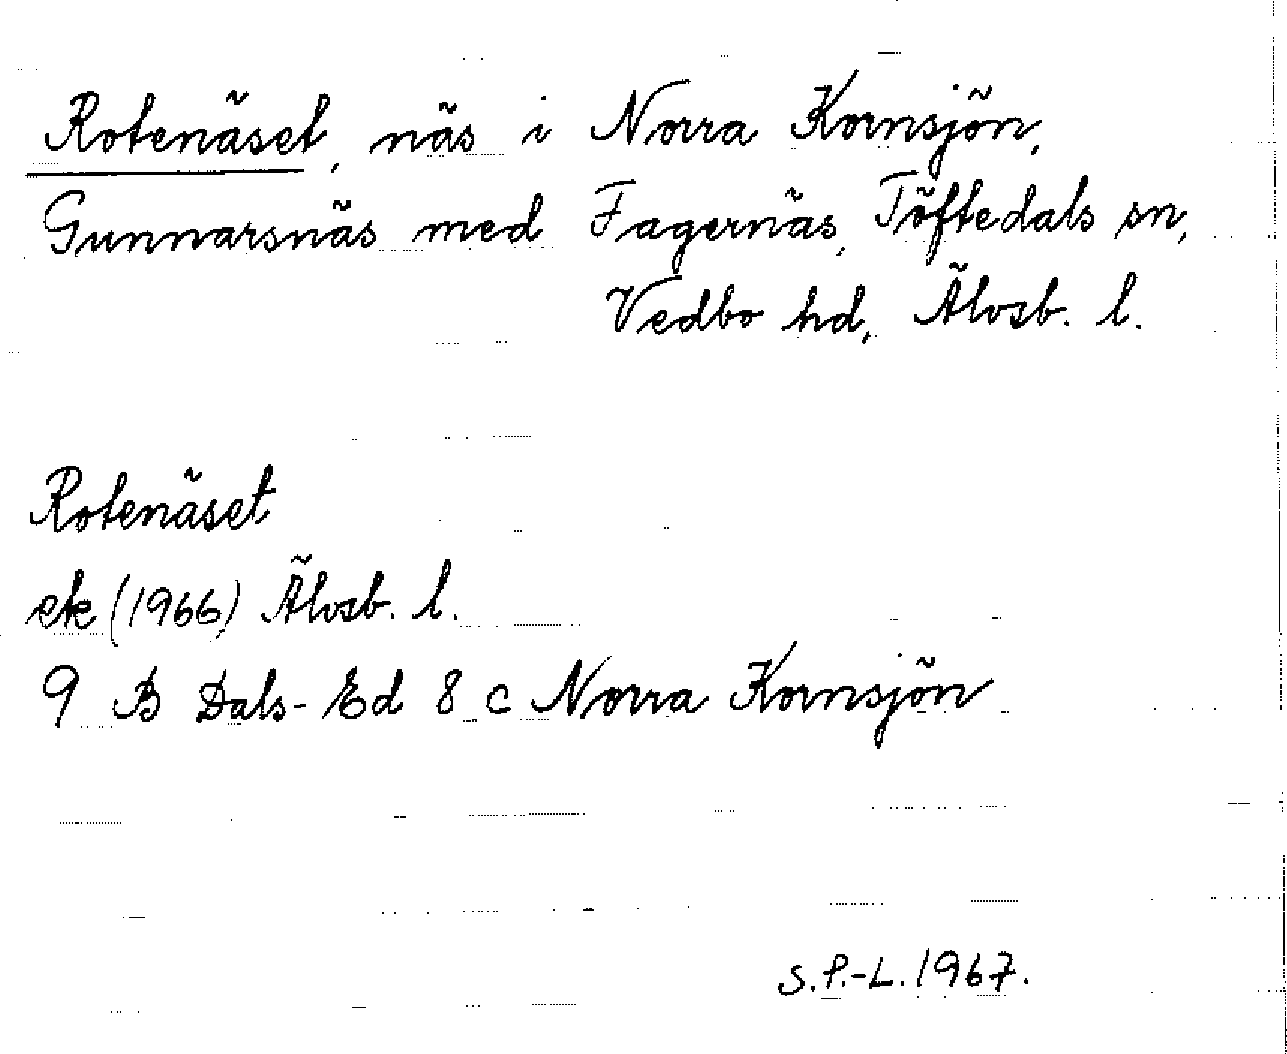 Rotenäset, näs i Norra Kornsjön,
Gunnarsnäs med Fagernäs, Töftedals sn,
Vedbo hd, Älvsb. l.
Rotenäset
ek (1966) Älvsb. l.
9 B Dals-Ed 8 c Norra Kornsjön
S.P.-L. 1967.